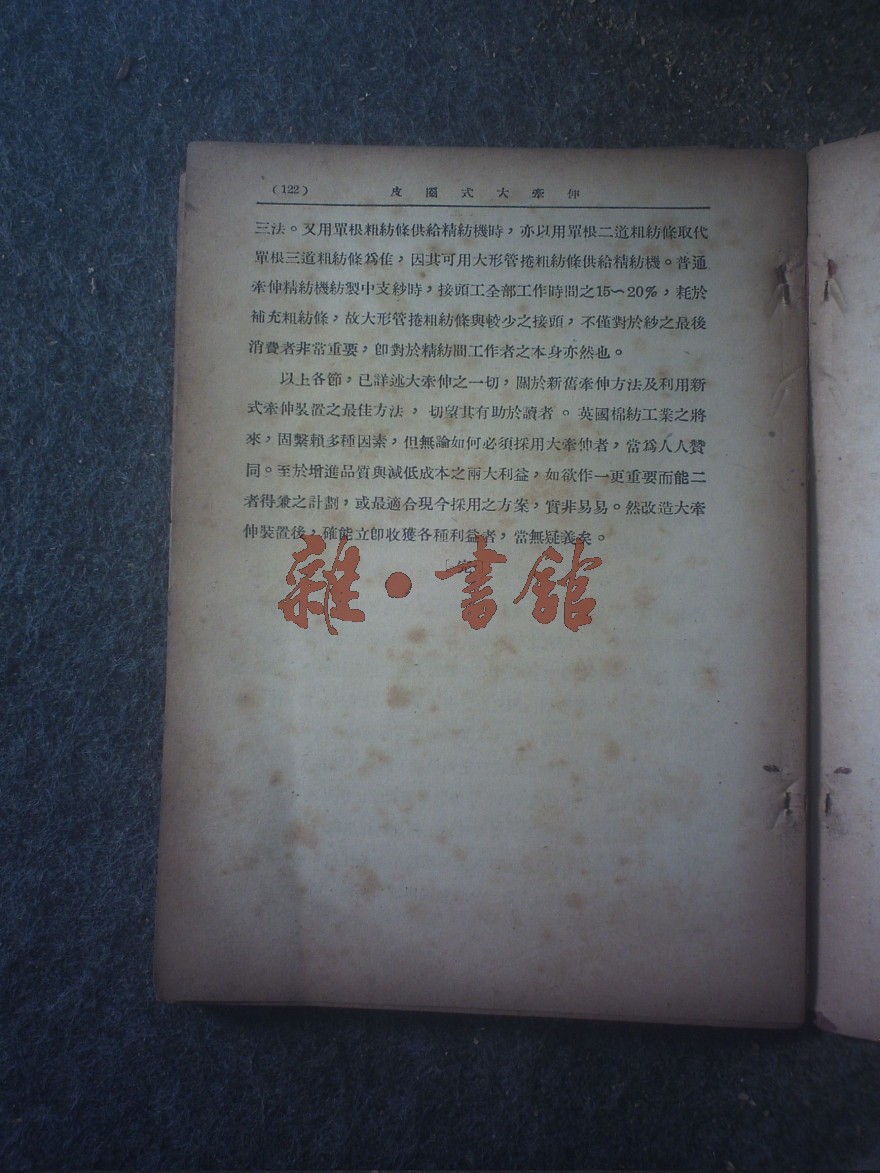 (122) 皮圈式大牽伸
三法。又用單根粗紡條供給精紡機時，亦以用單根二道粗紡條取代
單根三道粗紡條爲隹，因其可用大形管捲粗紡條供給精紡機。普通
牽伸精紡機紡製中支紗時，接頭工全部工作時間之15～20%，耗於
補充粗紡條，故大形管捲粗紡條與較少之接頭，不僅對於紗之最後
消費者非常重要，卽對於精紡間工作者之本身亦然也。
以上各節，已詳述大牽伸之一切，關於新舊牽伸方法及利用新
式牽伸裝置之最佳方法，切望其有助於讀者。英國棉紡工業之將
來，固繫賴多種因素，但無論如何必須採用大牽伸者，當爲人人贊
同。至於增進品質與減低成本之兩大利益，如欲作一更重要而能二
者得兼之計劃，或最適合現今採用之方案，實非易易。然改造大牽
伸裝置後，確能立卽收獲各種利益者，當無疑義矣。
雜·書館